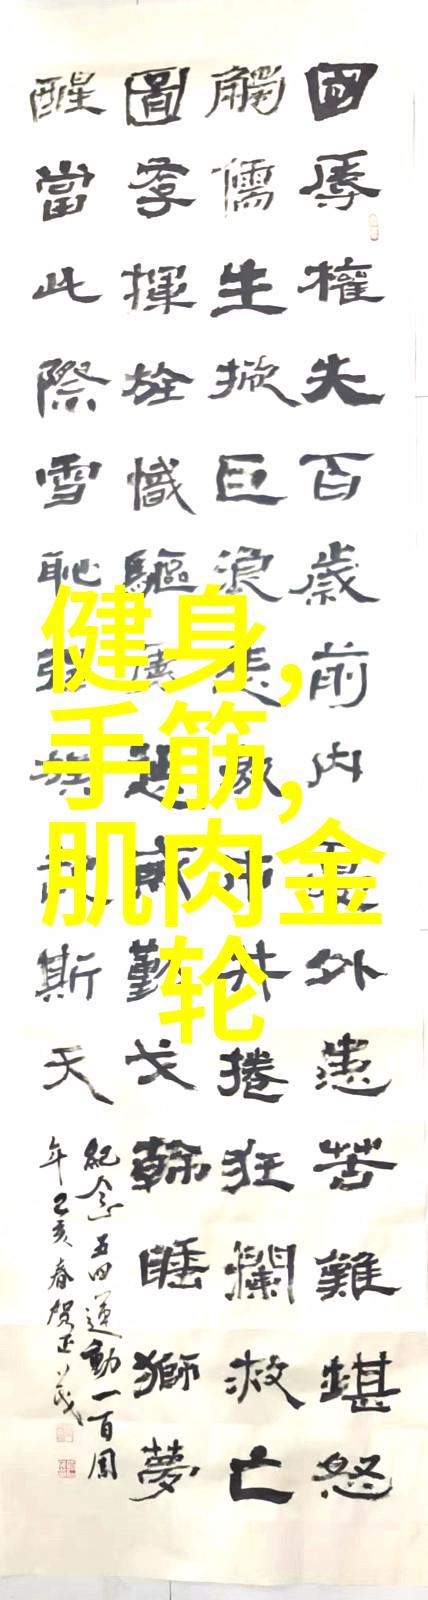 國辱權失百歲前内外患苦難堪怒
觸儒生掀巨浪市井捲狂瀾救亡
圖存揮旌幟驅勤戈斡睡獅夢
醒當此際雪恥強族斯天
紀念五四運動一百周
年己亥春賀正茂
健身,
手筋,
肌肉金
轮